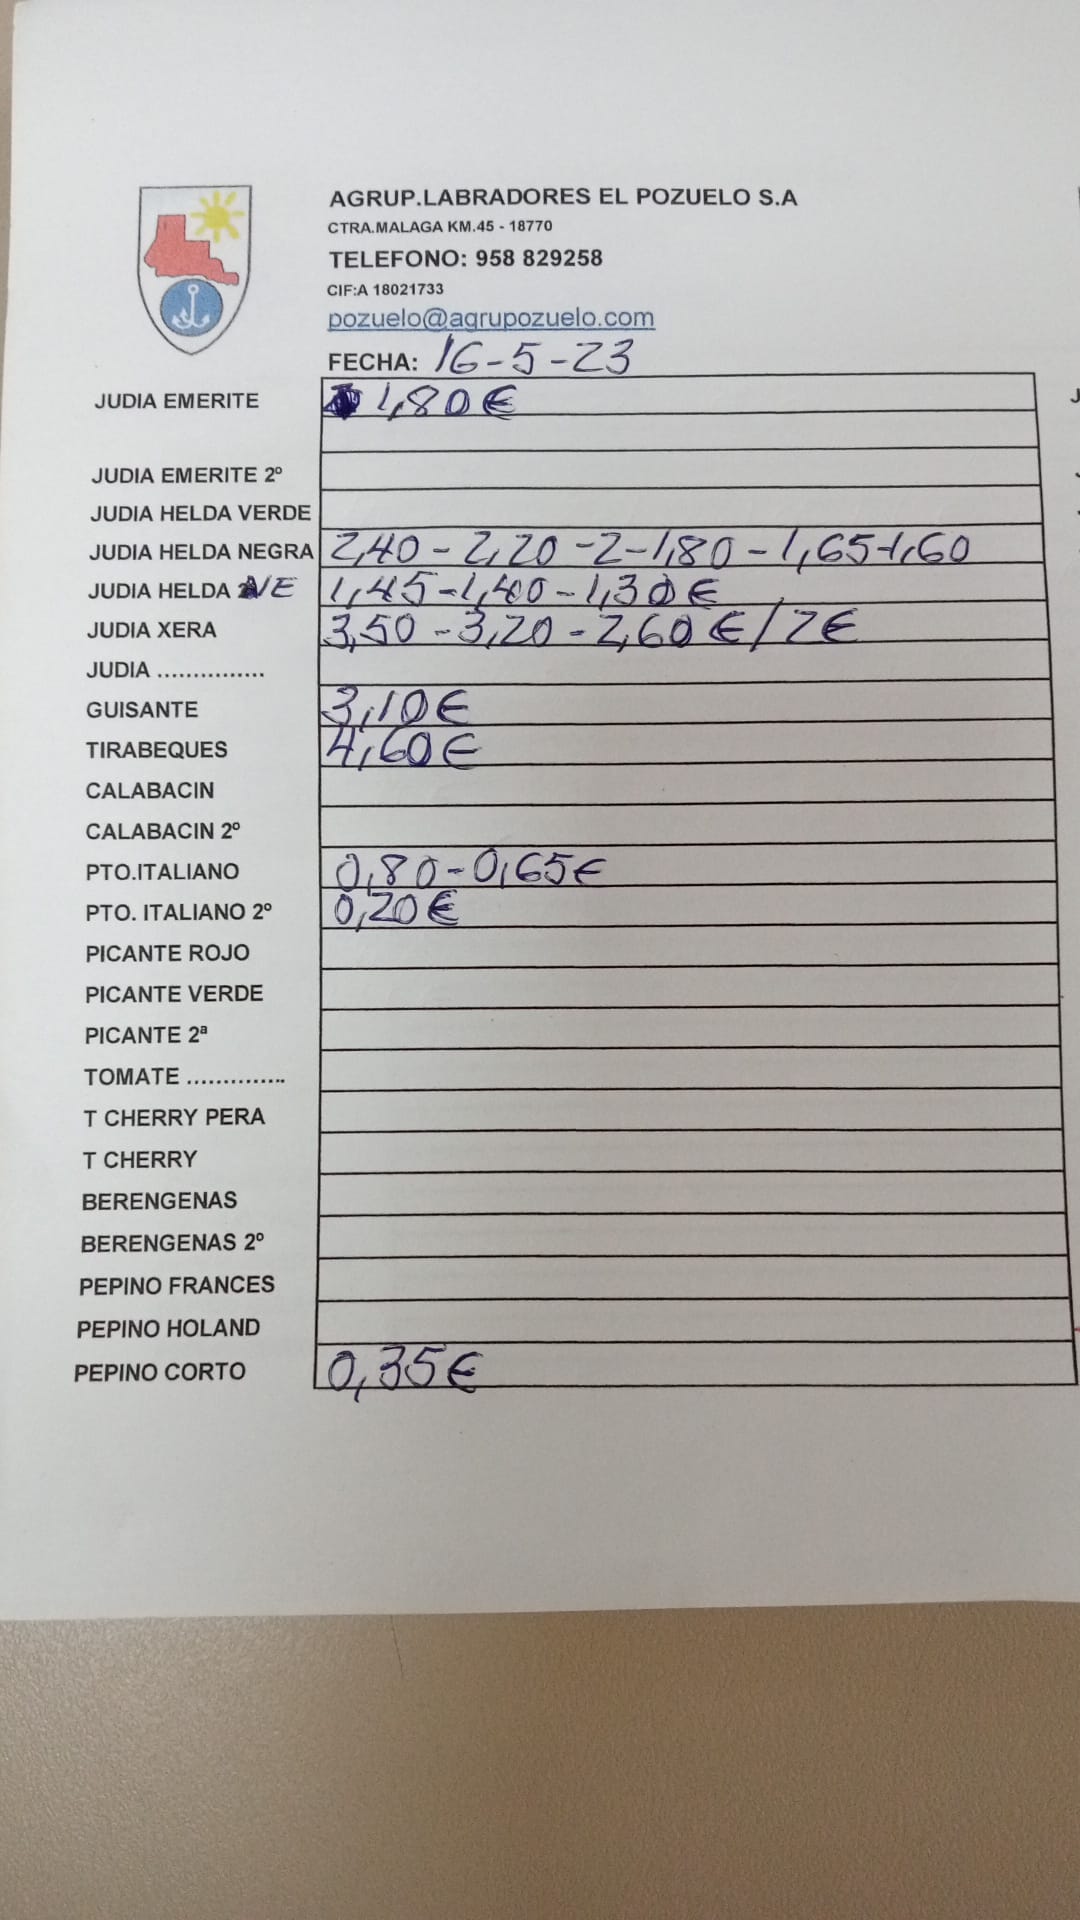 AGRUP.LABRADORES EL POZUELO S.A
CTRA.MALAGA KM.45 - 18770
TELEFONO: 958 829258
CIF:A 18021733
pozuelo@agrupozuelo.com
FECHA: 16-5-23
JUDIA EMERITE 1,80€
JUDIA EMERITE 2º
JUDIA HELDA VERDE
JUDIA HELDA NEGRA 2,40-2,20-2-1,80-1,65-1,60
JUDIA HELDA NE 1,45-1,40-1,30€
JUDIA XERA 3,50-3,20-2,60€/2€
JUDIA ...............
GUISANTE 3,10€
TIRABEQUES 4,60€
CALABACIN
CALABACIN 2º
PTO.ITALIANO 0,80-0,65€
PTO. ITALIANO 2º 0,20€
PICANTE ROJO
PICANTE VERDE
PICANTE 2ª
TOMATE ..............
T CHERRY PERA
T CHERRY
BERENGENAS
BERENGENAS 2º
PEPINO FRANCES
PEPINO HOLAND
PEPINO CORTO 0,35€